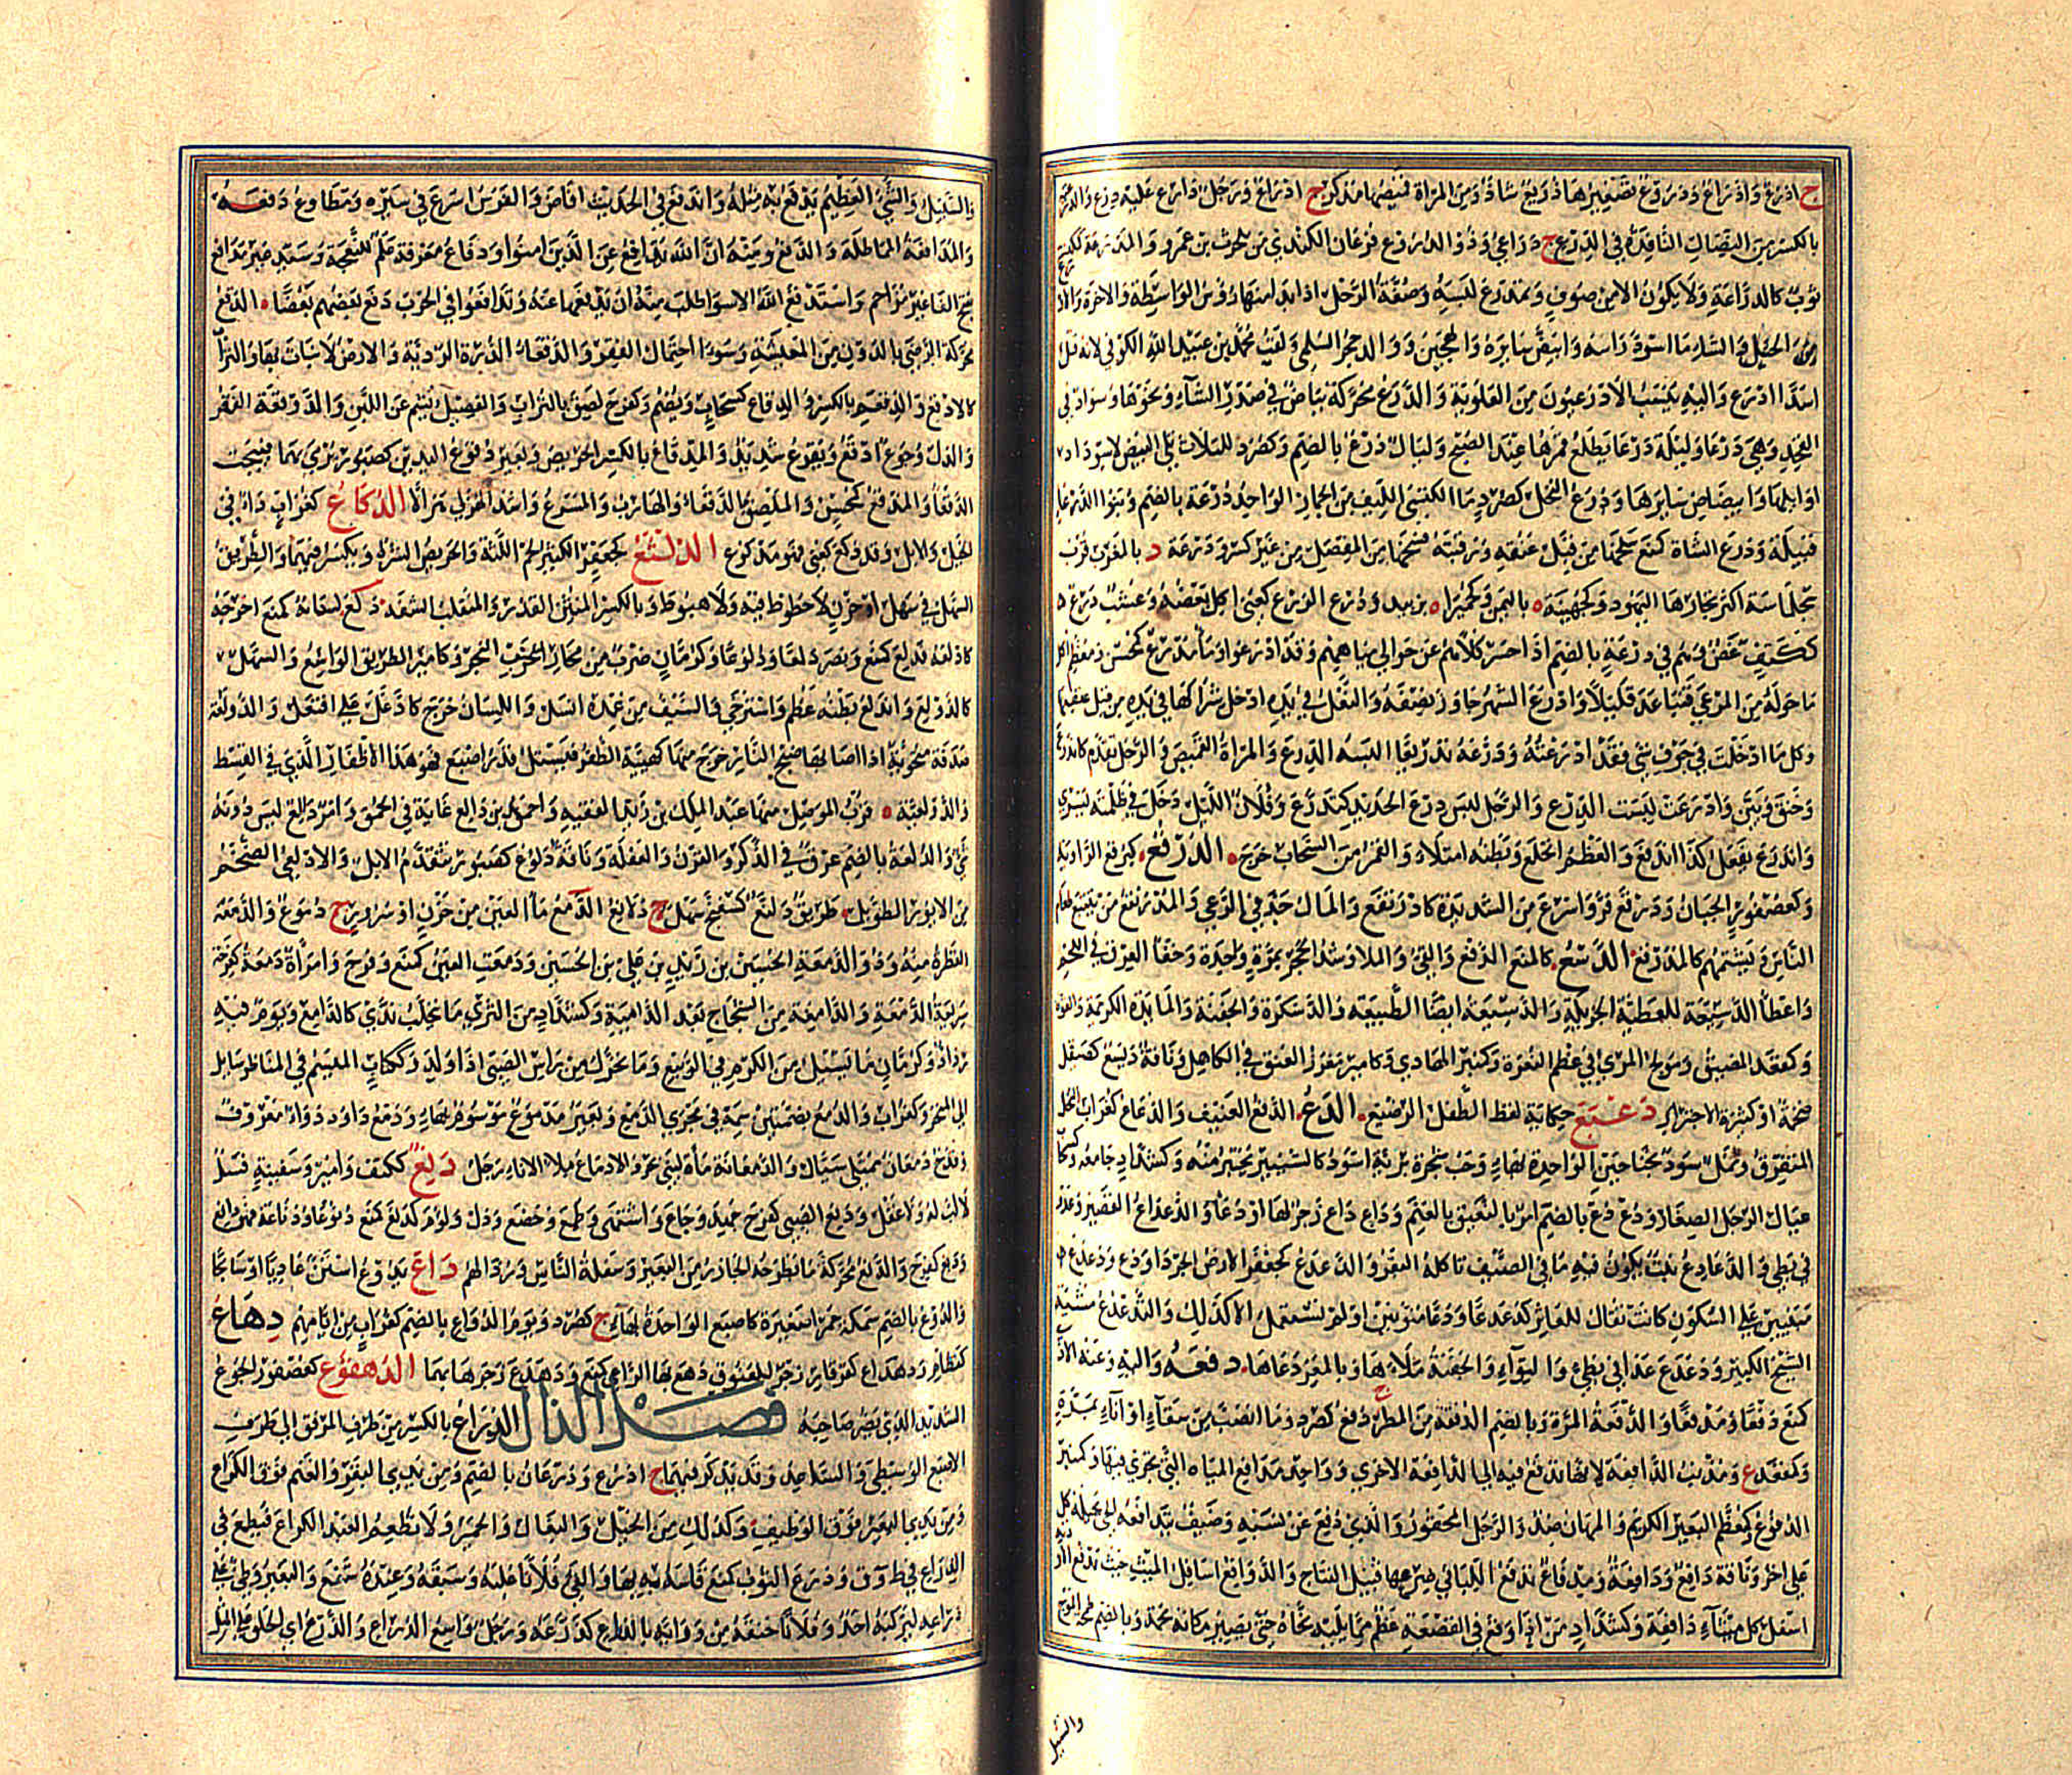 ج ادرع وادراع ودروع تصغيرها دريع شاذ ومن المراة قميصها مذكر ج ادراع ورجل دارع عليه درع
بالكسر من النصال النافذة في الدرع ج دراعي وذو الدروع فرعان الكندي من بلحرث بن عمرو والمدرعة كمكنسة
ثوب كالدراعة ولا يكون الا من صوف وتمدرع لبسه وصفة الرحل اذا بدا منها رؤس الواسطة والاخرة
من الخيل والشاء ما اسود راسه وابيض سايره والهجين ووالد حجر السلمي ولقب محمد بن عبيد الله الكوفي لانه قتل
اسدا ادرع واليه ينسب الادرعيون من العلوية والدرع محركة بياض في صدر الشاء ونحوها وسواد في
الفخذ وهي درعا وليلة درعا يطلع قمرها عند الصبح وليال درع بالضم وكصرد للثلاث تلي البيض لاسوداد
اوايلها وابيضاض سايرها ودرع النخل كصرد ما اكتسى الليف من الجمار الواحد درعة بالضم وبنو الدرعا
قبيلة ودرع الشاة كمنع سلخها من قبل عنقه ورقبته فسخها من المفصل من غير كسر ودرعة د بالمغرب قرب
سجلماسة اكثر تجارها اليهود وكجهينة باليمن وكحميرا بزبيد ودرع الزرع كعنى اكل بعضه وعشب درع
ككتف غض وهم في درعة بالضم اذا حسر كلاهم عن حوالي مياههم وقد ادرعوا وماء مدرع كمحسن ومعظم اكل
ما حوله من المرعى فتباعد قليلا وادرع الشهر جاوز نصفه والنعل في يده ادخل شراكها في يده من قبل عقبها
وكل ما ادخلت في جوف شي فقد ادرعته ودرعه تدريعا البسه الدرع والمراة القميص والرجل تقدم كاندرع
وخنق وبين وادرعت لبست الدرع والرجل لبس درع الحديد كتدرع وفلان الليل دخل في ظلمته يسري
واندرع يفعل كذا اندفع والعظم انخلع وبطنه امتلا والقمر من السحاب خرج الدرقع كبرقع الراوية
وكعصفور الجبان ودرقع فر واسرع من الشديدة كادرنقع والمال جد في الرعي والمدرنقع من يتتبع طعام
الناس ويشتمهم كالمدرقع الدسع كالمنع الدفع والقي والملا وسد الجحر بمرة واحدة وخفا العرق في اللحم
واعطا الدسيعة للعطية الجزيلة والدسيعة ايضا الطبيعة والدسكرة والجفنة والمايدة الكريمة والقوة
وكمقعد المضيق ومولج المري في عظم الثغرة وكمنبر الهادي وكامير مغرز العنق في الكاهل وناقة ديسع كصيقل
ضخمة او كثيرة الاجترار دعبع حكاية لفظ الطفل الرضيع الدع الدفع العنيف والدعاع كغراب النخل
المتفرق ونمل سود بجناحين الواحدة بهاء وحب شجرة برية اسود كالشينيز يختبز منه وكشداد جامعه
عيال الرجل الصغار ودع دع بالضم امر بالنعيق بالغنم وداع داع زجر لها او دعا والدعداع القصير وعدو
في بطء والدعادع نبت يكون فيه ماء في الصيف تاكله البقر والدعدع كجعفر الارض الجرداء ودع ودعدع
مبنيين على السكون كانت تقال للعاثر كدعدعا ودعا منونين او لم تستعمل الا كذلك والتدعدع مشية
الشيخ الكبير ودعدع عدا في بطء والتواء والجفنة ملاها وبالمعز دعاها دفعه واليه وعنه الاذى
كمنع دفعا ومدفعا والدفعة المرة وبالضم الدفعة من المطر ج دفع كصرد وما انصب من سقاء او اناء بمرة
وكمقعد ع ومذنب الدافعة لانها تدفع فيه الى الدافعة الاخرى وواحد مدافع المياه التي تجري فيها وكمنبر
الدفوع وكمعظم البعير الكريم والمهان ضد والرجل المحقور والذي دفع عن نسبه وضيف يتدافعه الحي يحيله كل
على اخر وناقة دافع ودافعة ومدفاع تدفع اللبا في ضرعها قبيل النتاج والدوافع اسافل الميث حيث تدفع
اسفل كل ميثاء دافعة وكشداد من اذا وقع في القصعة عظم مما يليه نحاه حتى يصير مكانه لحمة وبالضم طحمة الموج
والسيل
والسيل والشيء العظيم يدفع به مثله واندفع في الحديث افاض والفرس اسرع في سيره ومطاوع دفعه
والمدافعة المماطلة والدفع ومنه ان الله يدافع عن الذين امنوا ودفاع معرفة علم للنعجة وسيد غير مدافع
غير مزاحم واستدفع الله الاسواء طلب منه ان يدفعها عنه وتدافعوا في الحرب دفع بعضهم بعضا الدقع
محركة الرضى بالدون من المعيشة وسوء احتمال الفقر والدقعاء الذرة الردية والارض لا نبات بها والتراب
كالادقع والدقعم بالكسر والدقاع كسحاب ويضم وكفرح لصق بالتراب والفصيل بشم عن اللبن والدوقعة الفقر
والذل وجوع ادقع وديقوع شديد والمدقاع بالكسر الحريص وبعير دقوع اليدين كصبور يرمي بهما فيبحث
الدقعاء والمدقع كمحسن والملصق بالدقعاء والهارب والمسرع واشد الهزلى هزالا الدكاع كغراب داء في
الخيل والابل وقد دكع كعنى فهو مدكوع الدلثع كجعفر الكثير لحم اللثة والحريص الشره ويكسر فيهما والطريق
السهل في سهل او حزن لا حطوط فيه ولا هبوط وبالكسر المنتن القذر والمنقلب الشفة دلع لسانه كمنع اخرجه
كادلعه فدلع كمنع ونصر دلعا ودلوعا وكرمان ضرب من محار البحر وكامير الطريق الواسع والسهل
كالدولع واندلع بطنه عظم واسترخى والسيف من غمده انسل واللسان خرج كادلع على افتعل والدولعة
صدفة متحوية اذا اصابها ضبح النار خرج منها كهيئة الظفر فيستل قدر اصبع فهو هذا الاظفار الذي في القسط
والدولعية قرب الموصل منها عبد الملك بن زيد الفقيه واحمق من دالع غاية في الحمق وامر دالع ليس دونه
شي والدلعة بالضم عرق في الذكر والقرن والعفلة وناقة دلوع كصبور تتقدم الابل والادلعي الضخم
من الايور الطويل طريق دلنع كسمند سهل ج دلانع الدمع ماء العين من حزن او سرور ج دموع والدمعة
القطرة منه وذو الدمعة الحسين بن زيد بن علي بن الحسين ودمعت العين كمنع وفرح وامراة دمعة كفرحة
سريعة الدمعة والدامعة من الشجاج بعد الدامية وكشداد من الثرى ما تحلب ندى كالدامع ويوم فيه
رذاذ وكرمان ما يسيل من الكرم في الربيع وما تحرك من راس الصبي اذا ولد وككتاب الميسم في المناظر سايل
الى المنخر وكغراب والدمع بضمتين سمة في مجرى الدمع وبعير مدموع موسوم بها ودمع داود دواء معروف
وقدح دمعان ممتلئ سيال والدمعانة ماءة لبني بحر والادماع ملء الاناء رجل دنع ككتف وامير وسفينة فسل
لا لب له ولا عقل ودنع الصبي كفرح جهد وجاع واشتهى وطمع وخضع وذل ولؤم كدنع كمنع دنوعا ودناعة فهو دانع
ودنع كفرح والدنع محركة ما يطرحه الجازر من البعير وسفلة الناس ورذالهم داع يدوع استن عاديا او سابحا
والدوع بالضم سمكة حمراء صغيرة كاصبع الواحدة بهاء ج كصرد ويوم الدواع بالضم كغراب من ايامهم دهاع
كقطام ودهداع كقرقار زجر للعنوق ودهع بها الراعي كمنع ودهدع زجرها بهما الدهقوع كعصفور الجوع
الشديد الذي يصرع صاحبه فصل الذال الذراع بالكسر من طرف المرفق الى طرف
الاصبع الوسطى والساعد وقد تذكر فيهما ج اذرع وذرعان بالضم ومن يدي البقر والغنم فوق الكراع
ومن يدي البعير فوق الوظيف وكذلك من الخيل والبغال والحمير ولا تطعم العبد الكراع فيطمع في
الذراع في ط وق وذرع الثوب كمنع قاسه بها والقي فلانا غلبه وسبقه وعنده شفع والبعير وطئ على
ذراعيه ليركبه احد وفلانا خنقه من ورائه بالذراع كذرعه ورجل واسع الذراع والذرع اي الخلق على المثل